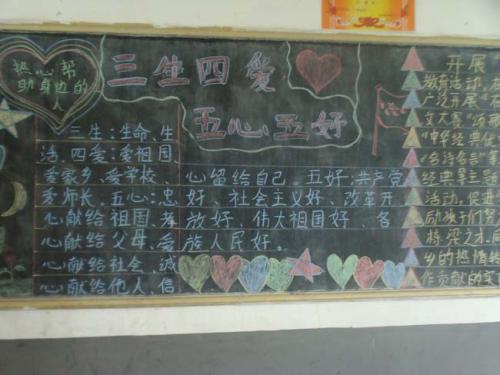 热心帮
助身边的
人
三生四爱
五心五好
三生:生命、生
活、四爱:爱祖国、
爱家乡、爱学校、
爱师长、五心:忠
心献给祖国、孝
心献给父母、爱
心献给社会、诚
心献给他人、信
心留给自己、五好:共产党
好、社会主义好、改革开
放好、伟大祖国好、各
族人民好。
开展
教育活动,
广泛开展
文大赛"
经典
经典
活动,促进
励孩子们
将梁之
乡的热情
作贡献的